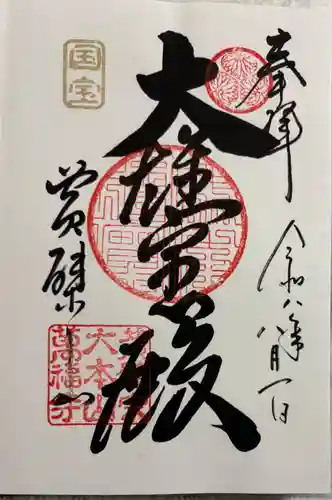 奉拝
令和八年八月一日
大雄宝殿
国宝
黄檗山
大本山
萬福寺